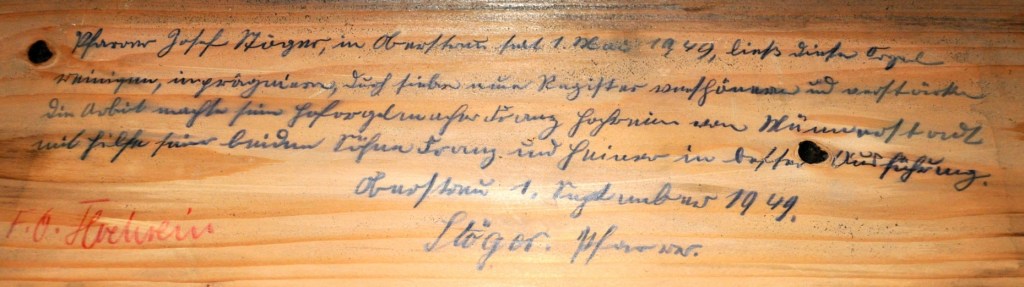 Pfarrer Josef Stöger, in Oberstreu, seit 1. Mai 1949, ließ diese Orgel
reinigen, imprägnieren, durch sieben neue Register verschönern und verstärken
die Arbeit machte sein Hoforgelmacher Franz Hochrein von Münnerstadt
mit Hilfe seiner beiden Söhne Franz. und Heiner in bester Ausführung.
Oberstreu 1. September 1949.
Stöger. Pfarrer.
F. O. Hochrein